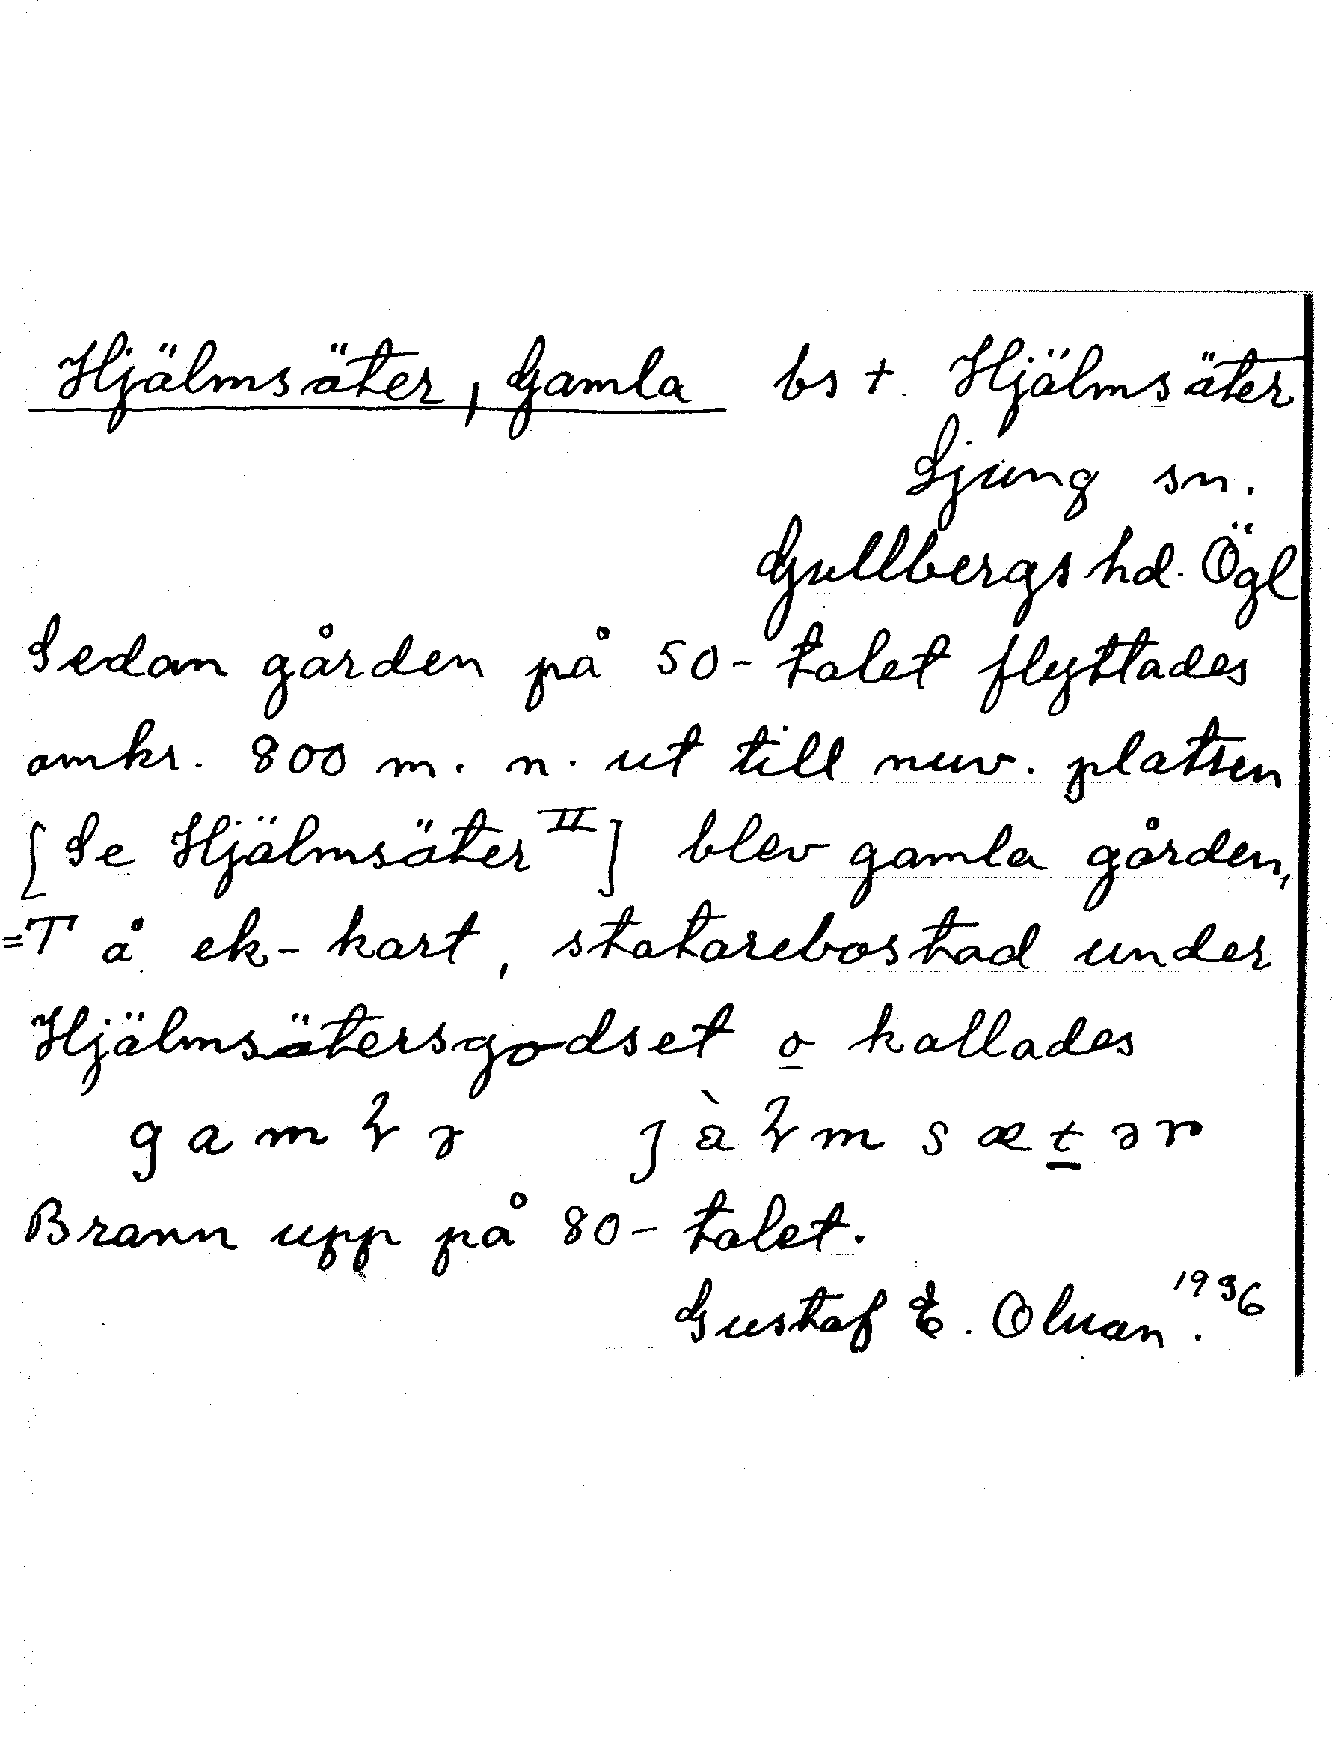 Hjälmsäter, Gamla bs t. Hjälmsäter
Ljung sn.
Gullbergs hd. Ögl
Sedan gården på 50-talet flyttades
omkr. 800 m. n. ut till nuv. platsen
[Se Hjälmsäter II] blev gamla gården,
=T å ek-kart, statarebostad under
Hjälmsätersgodset o kallades
Brann upp på 80-talet.
Gustaf E. 1936